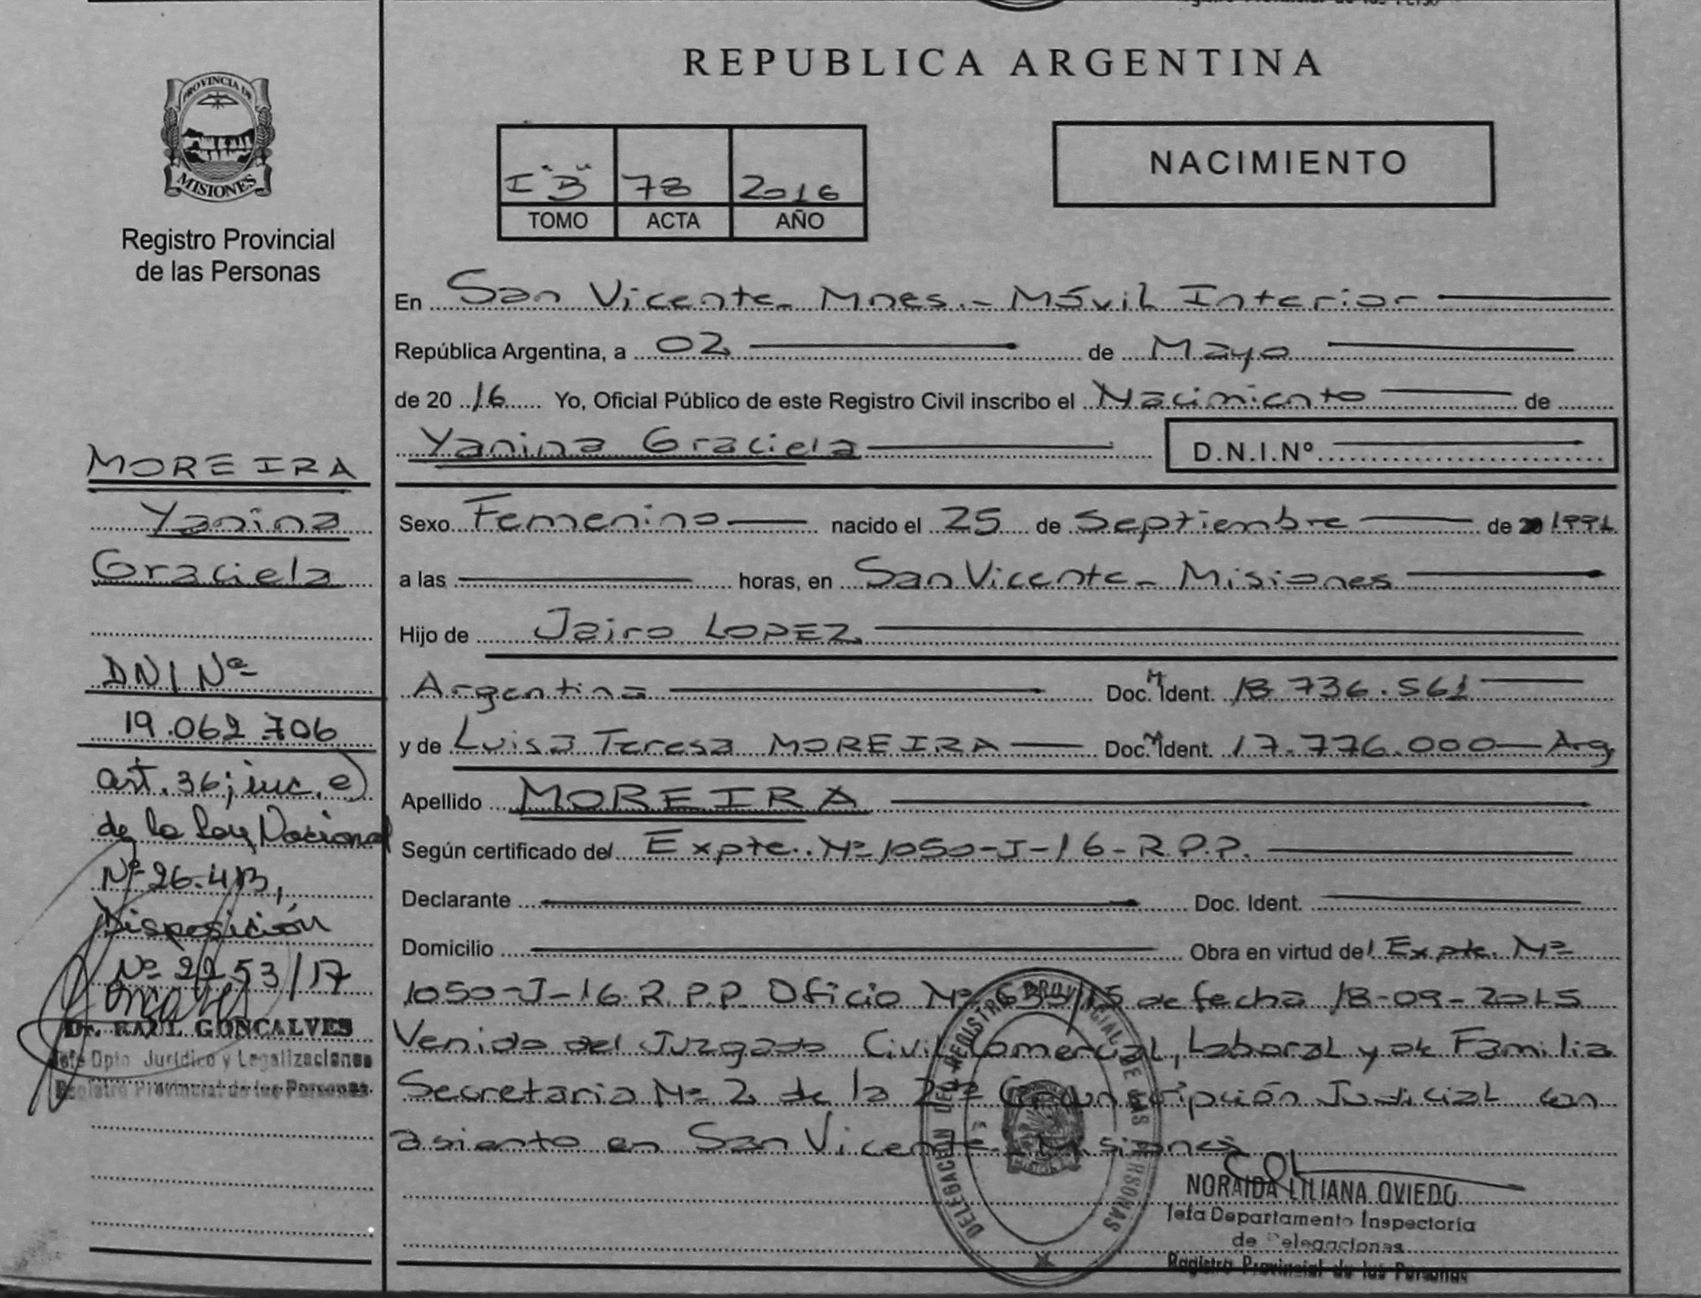 REPUBLICA ARGENTINA
PROVINCIA DE
MISIONES
Registro Provincial
de las Personas
I "B" 78 2016
TOMO ACTA AÑO
NACIMIENTO
En San Vicente - Mnes. - Móvil Interior
República Argentina, a 02 de Mayo
de 20 16 Yo, Oficial Público de este Registro Civil inscribo el Nacimiento de
Yanina Graciela D.N.I.Nº
Sexo Femenino nacido el 25 de Septiembre de 1991
a las horas, en San Vicente - Misiones
Hijo de Jairo LOPEZ
Argentina Doc. M Ident. 18.736.561
y de Luisa Teresa MOREIRA Doc. M Ident. 17.776.000 - Arg
Apellido MOREIRA
Según certificado del Expte. Nº 1050-J-16-R.P.P.
Declarante Doc. Ident.
Domicilio Obra en virtud del Expte. Nº
1050-J-16-R.P.P Oficio Nº /15 de fecha 18-09-2015
Venido del Juzgado Civil, Comercial, Laboral y de Familia
Secretaria Nº 2 de la 2da Circunscripción Judicial con
asiento en San Vicente - Misiones
NORAIDA LILIANA OVIEDO
Jefa Departamento Inspectoría
de Delegaciones
Registro Provincial de las Personas
MOREIRA
Yanina
Graciela
DNI Nº
19.062.706
art. 36; inc. e)
de la Ley Nacional
Nº 26.413,
Disposición
Nº 2253/17
Dr. RAUL GONCALVES
Jefe Dpto. Jurídico y Legalizaciones
Registro Provincial de las Personas
DELEGACION DEL REGISTRO PROVINCIAL DE LAS PERSONAS